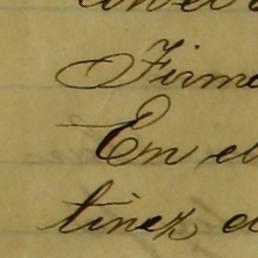 Firme
En el
tinez d